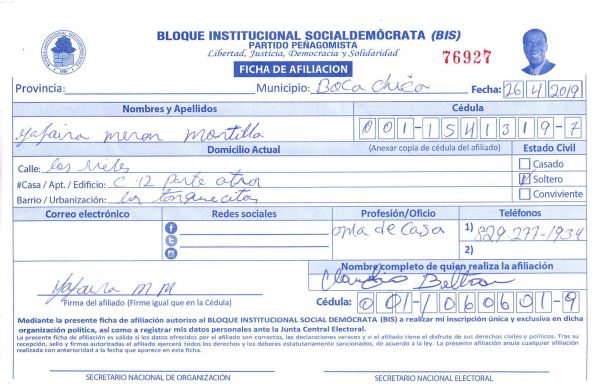 BLOQUE INSTITUCIONAL SOCIALDEMÓCRATA (BIS)
PARTIDO PEÑAGOMISTA
Libertad, Justicia, Democracia y Solidaridad
76927
FICHA DE AFILIACION
Provincia: Municipio: Boca chica Fecha: 26/4/2019
Nombres y Apellidos Cédula
Yafaira meran Montilla 001-1541319-7
Domicilio Actual (Anexar copia de cédula del afiliado) Estado Civil
Calle: los rieles Casado
#Casa / Apt. / Edificio: C 12 parte atras Soltero
Barrio / Urbanización: los tanquecitos Conviviente
Correo electrónico Redes sociales Profesión/Oficio Teléfonos
ama de casa 1) 829-277-1934
2)
Nombre completo de quien realiza la afiliación
Claudio Beltran
Yafaira M M
Firma del afiliado (Firme igual que en la Cédula) Cédula: 001-1060601-9
Mediante la presente ficha de afiliación autorizo al BLOQUE INSTITUCIONAL SOCIAL DEMÓCRATA (BIS) a realizar mi inscripción única y exclusiva en dicha
organización política, así como a registrar mis datos personales ante la Junta Central Electoral.
La presente ficha de afiliación es válida si los datos ofrecidos por el afiliado son correctos, las declaraciones veraces y si el afiliado tiene el disfrute de sus derechos civiles y políticos. Tras su
recepción, sello y firmas autorizadas el afiliado ejercerá todos los derechos y los deberes estatutariamente sancionados, de acuerdo a la ley. La presente afiliación anula cualquier afiliación
realizada con anterioridad a la fecha que aparece en esta ficha.
SECRETARIO NACIONAL DE ORGANIZACIÓN SECRETARIO NACIONAL ELECTORAL